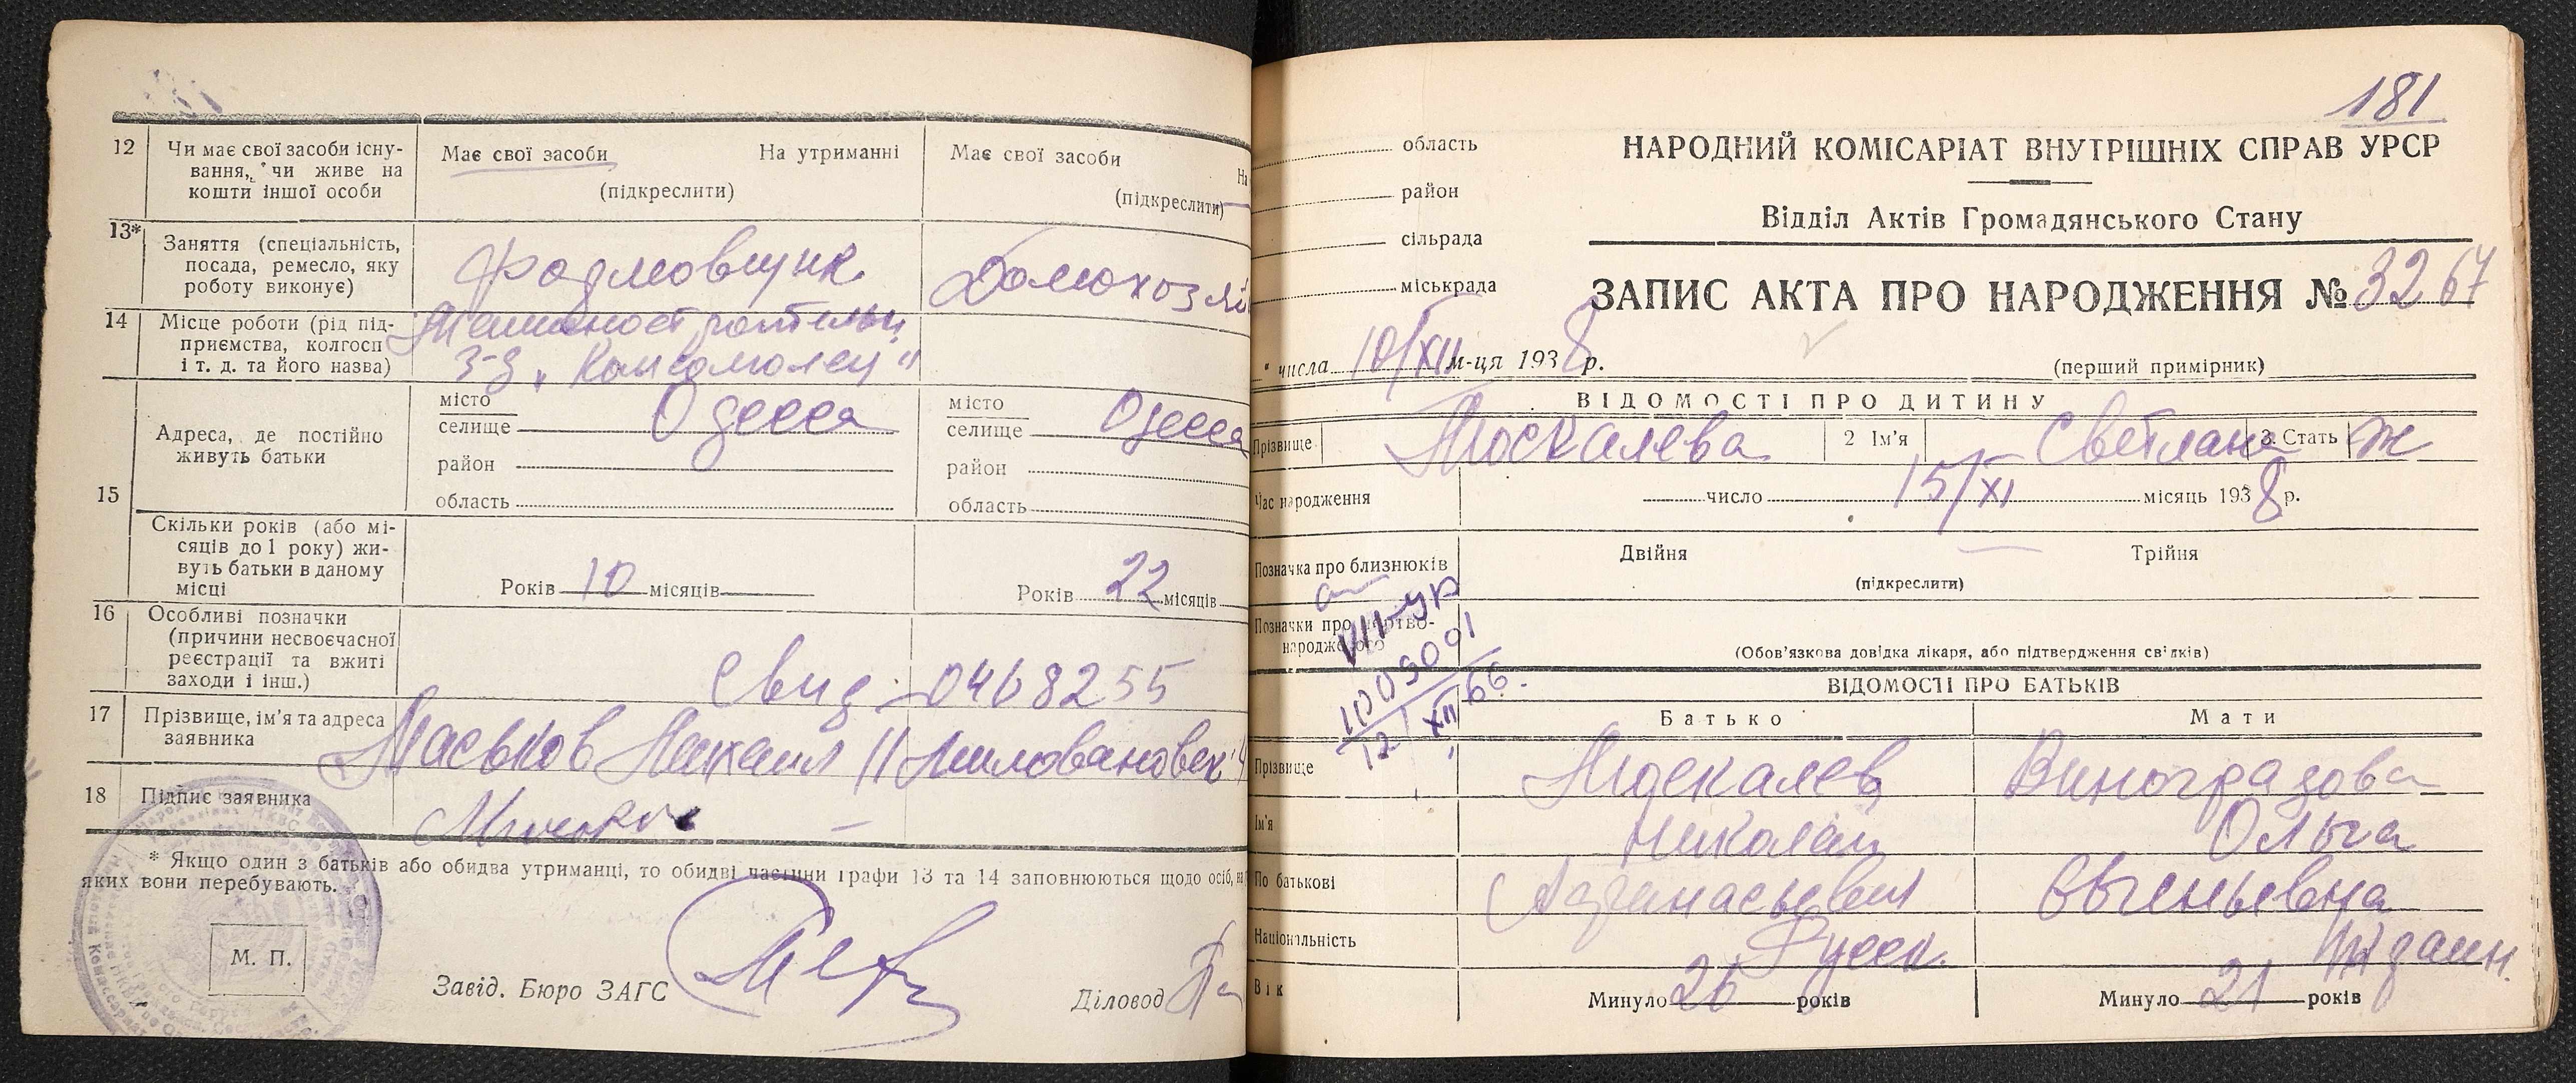 12 Чи має свої засоби існу-
вання, чи живе на
кошти іншої особи
Має свої засоби На утриманні
(підкреслити)
Має свої засоби На
(підкреслити)
13* Заняття (спеціальність,
посада, ремесло, яку
роботу виконує)
Формовщик
Домохозяй
14 Місце роботи (рід під-
приємства, колгосп
і т. д. та його назва)
Машиностроительн.
З-д „Комсомолец"
15 Адреса, де постійно
живуть батьки
місто
селище Одесса
район
область
місто
селище Одесса
район
область
Скільки років (або мі-
сяців до 1 року) жи-
вуть батьки в даному
місці
Років 10 місяців
Років 22 місяців
16 Особливі позначки
(причини несвоєчасної
реєстрації та вжиті
заходи і інш.)
Свид. 0468255
17 Прізвище, ім'я та адреса
заявника
Маськов Михаил
18 Підпис заявника
* Якщо один з батьків або обидва утриманці, то обидві частини графи 13 та 14 заповнюються щодо осіб, на
яких вони перебувають.
М. П.
Завід. Бюро ЗАГС
Діловод
181
область
район
сільрада
міськрада
НАРОДНИЙ КОМІСАРІАТ ВНУТРІШНІХ СПРАВ УРСР
Відділ Актів Громадянського Стану
ЗАПИС АКТА ПРО НАРОДЖЕННЯ № 3267
" числа 10/XII м-ця 1938 р.
(перший примірник)
ВІДОМОСТІ ПРО ДИТИНУ
Прізвище Москалева 2 Ім'я Светлана 3. Стать Ж
Час народження число 15/XI місяць 1938 р.
Позначка про близнюків
Двійня Трійня
(підкреслити)
Позначки про мертво-
народженого
(Обов'язкова довідка лікаря, або підтвердження свідків)
VIII-УР
1009091
12/XII 66.
ВІДОМОСТІ ПРО БАТЬКІВ
Батько Мати
Прізвище Москалев Виноградова
Ім'я Николай Ольга
По батькові Афанасьевич Евгеньевна
Національність Русск.
Вік Минуло 26 років Минуло 21 років